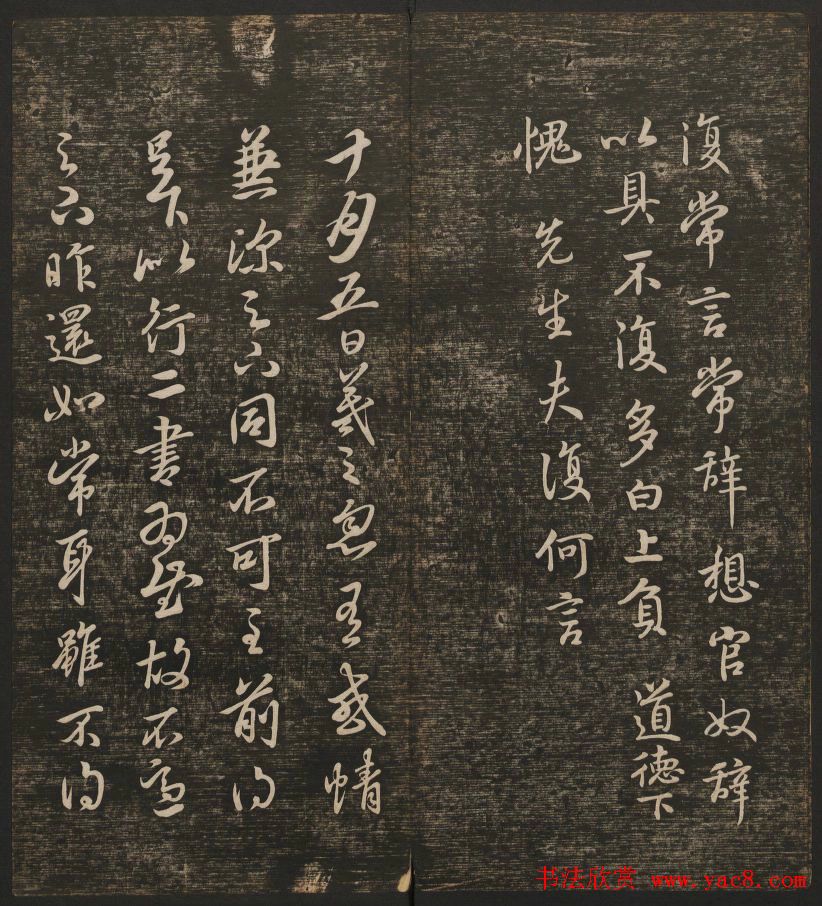 復常言常辞想官奴辞
以具不復多白上負 道德下
愧 先生夫復何言
十月五日羲之忽有感情
兼深之六同不可言前得
吴下以行二書為慰故不宣
之六昨還如常耳雖不得
书法欣赏 www.yac8.com